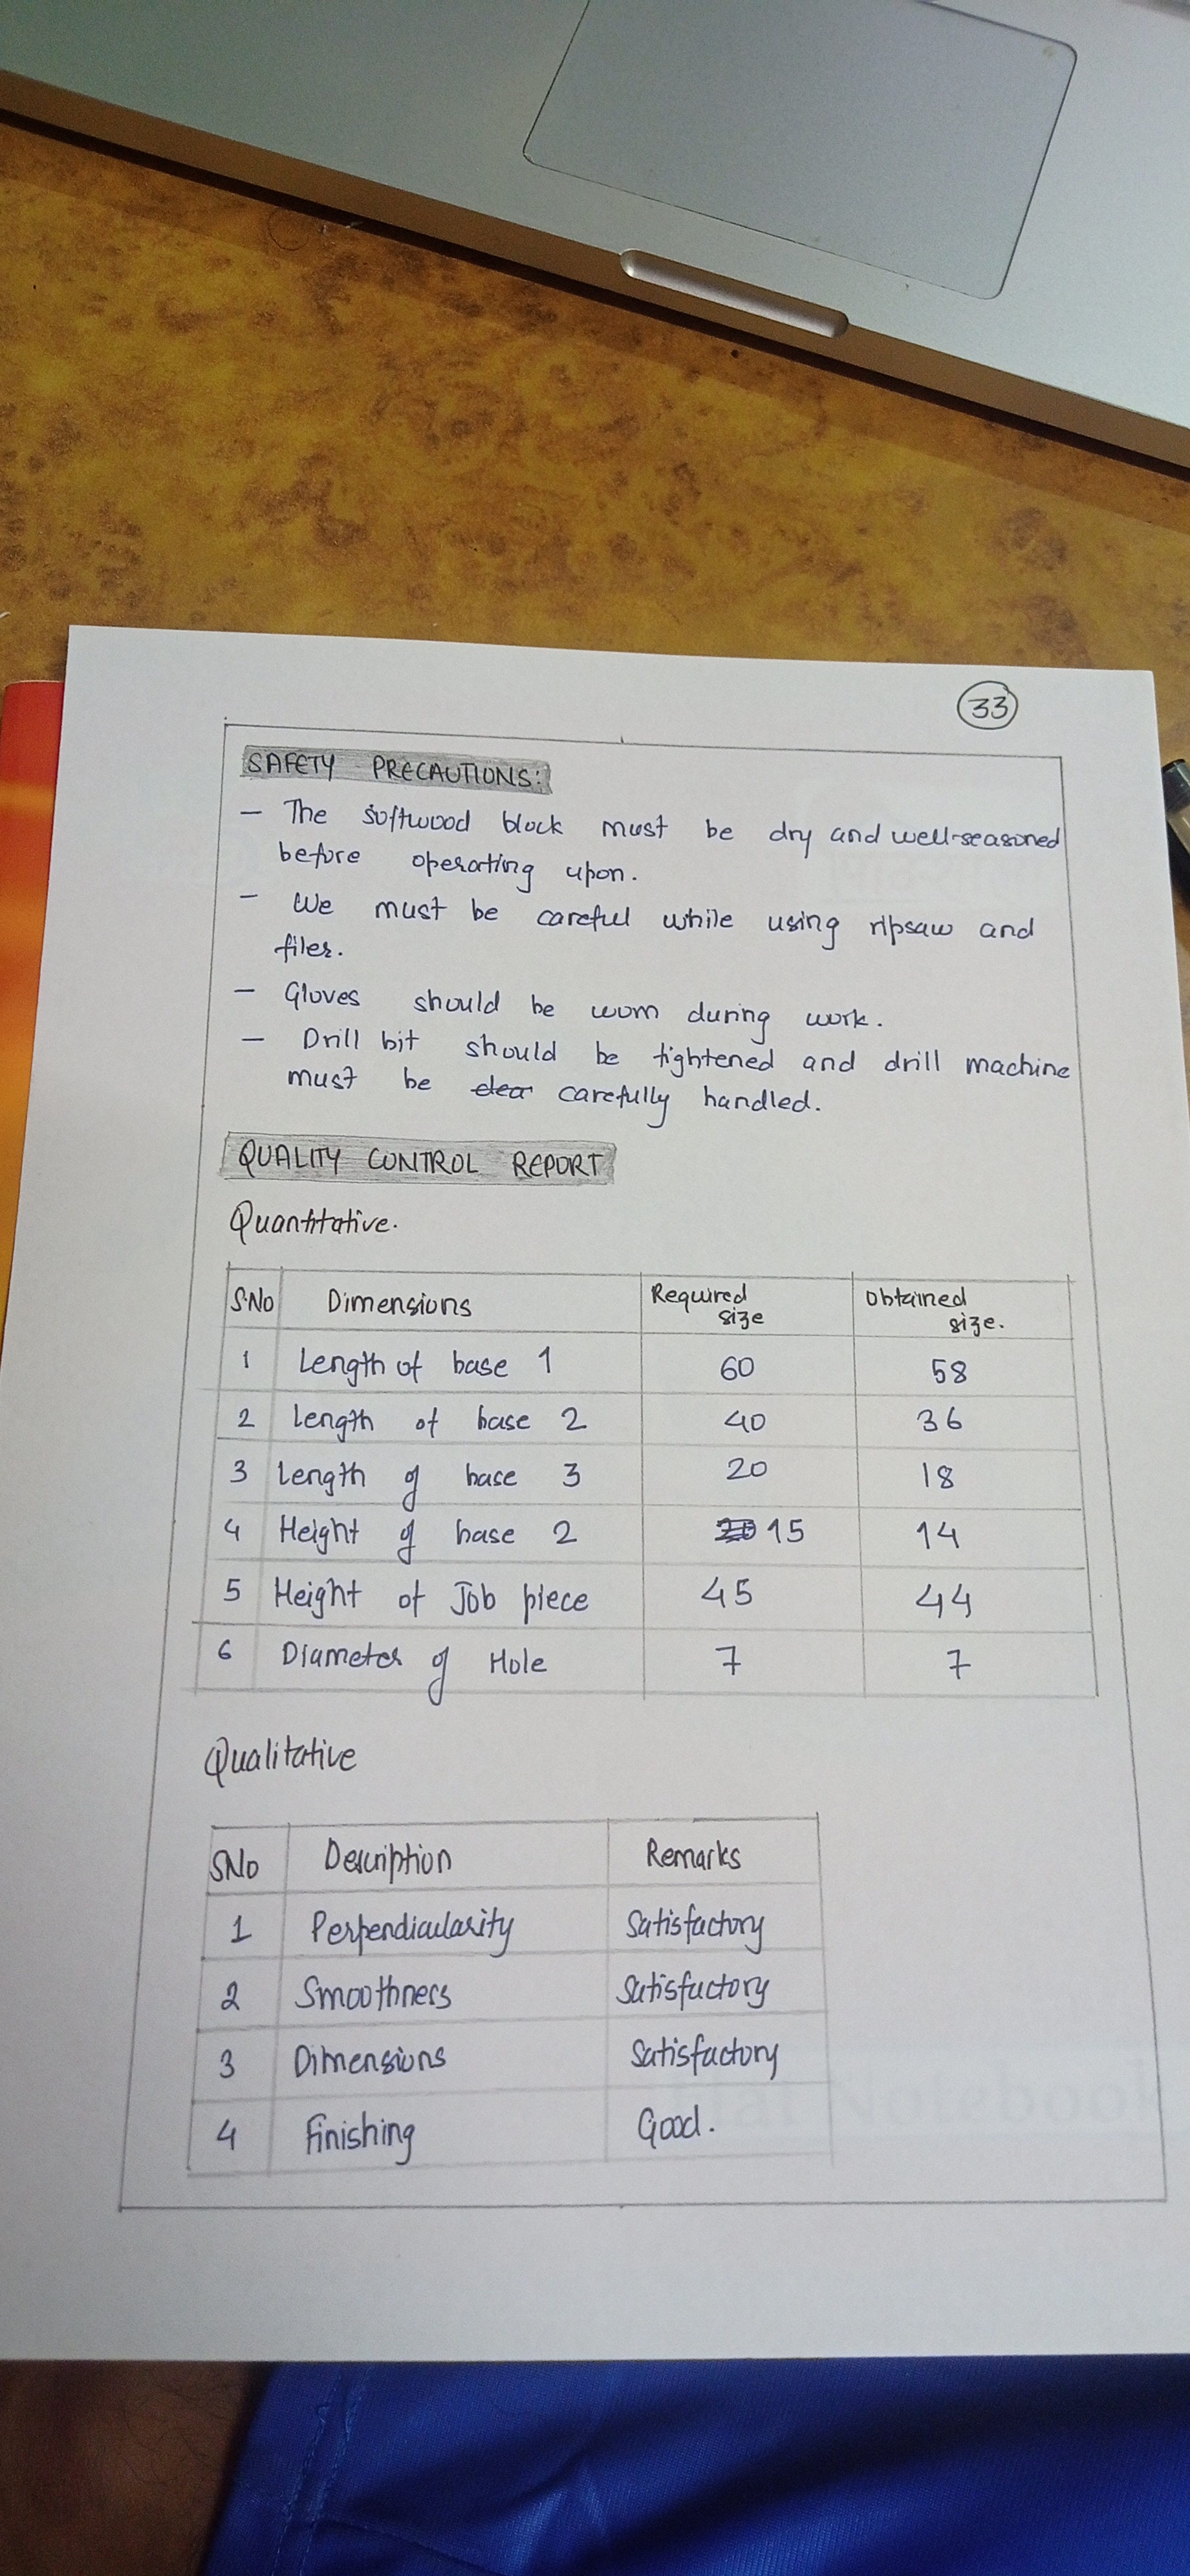 33
SAFETY PRECAUTIONS:
— The softwood block must be dry and well-seasoned
before operating upon.
— We must be careful while using ripsaw and
filer.
— Gloves should be worn during work.
— Drill bit should be tightened and drill machine
must be clear carefully handled.
QUALITY CONTROL REPORT
Quantitative.
S.No Dimensions Required size Obtained size.
1 Length of base 1 60 58
2 Length of base 2 40 36
3 Length of base 3 20 18
4 Height of base 2 20 15 14
5 Height of Job piece 45 44
6 Diameter of Hole 7 7
Qualitative
SNo Description Remarks
1 Perpendicularity Satisfactory
2 Smoothness Satisfactory
3 Dimensions Satisfactory
4 Finishing Good.
Notebook